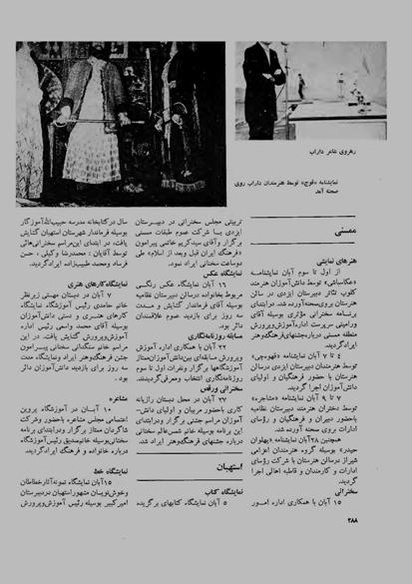 رهروی شاعر داراب
نمایشنامه «قوچ» توسط هنرمندان داراب روی
صحنه آمد
ممسنی
هنرهای نمایشی
از اول تا سوم آبان نمایشنامه
«عکاسباشی» توسط دانش‌آموزان هنرمند
کلوپ تئاتر دبیرستان ایزدی در سالن
هنرستان بروی‌صحنه‌آورده شد. درابتدای
برنامه سخنرانی مؤثری بوسیله آقای
ورامینی سرپرست اداره‌آموزش‌وپرورش
منطقه ممسنی درباره‌جشنهای‌فرهنگ‌وهنر
ایرادگردید.
۴ تا ۷ آبان نمایشنامه «قهوه‌چی»
توسط هنرمندان دبیرستان ایزدی درسالن
هنرستان با حضور فرهنگیان و اولیای
دانش‌آموزان اجرا گردید.
۷ تا ۹ آبان نمایشنامه «مشاجره»
توسط دختران هنرمند دبیرستان نظامیه
باحضور دبیران و فرهنگیان و رؤسای
ادارات روی صحنه آورده شد.
همچنین ۲۸آبان نمایشنامه «پهلوان
حیدر» بوسیله گروه هنرمندان اعزامی
شیراز درسالن هنرستان با شرکت رؤسای
ادارات و کارمندان و قاطبه اهالی اجرا
گردید.
سخنرانی
۱۵ آبان با همکاری اداره امور
تربیتی مجلس سخنرانی در دبیرستان
ایزدی با شرکت عموم طبقات ممسنی
برگزار وآقای سیدکریم خاتمی پیرامون
«فرهنگ ایران قبل وبعد از اسلام» طی
دوساعت سخنانی ایراد نمود.
نمایشگاه عکس
۱۶ آبان نمایشگاه عکس رنگی
مربوط بخانواده درسالن دبیرستان نظامیه
بوسیله آقای فرماندار گشایش و مدت
سه روز برای بازدید عموم علاقمندان
دائر بود.
مسابقه روزنامه‌نگاری
۲۲ آبان با همکاری اداره آموزش
وپرورش مسابقه‌ای بین‌دانش‌آموزان‌ممتاز
آموزشگاهها برگزار ونفرات اول تا سوم
روزنامه‌نگاری انتخاب ومعرفی‌گردیدند.
سخنرانی ورقص
۲۷ آبان در محل دبستان رازیانه
کاری باحضور مربیان و اولیای دانش‌ـ
آموزان مراسم جشنی برگزار ودرابتدای
این برنامه بوسیله خانم شمس‌عالم سخنانی
درباره جشنهای فرهنگ‌وهنر ایراد شد.
استهبان
نمایشگاه کتاب
۵ آبان نمایشگاه کتابهای برگزیده
سال درکتابخانه مدرسه حبیب‌الله‌آموزگار
بوسیله فرماندار شهرستان استهبان گشایش
یافت. در ابتدای این‌مراسم سخنرانی‌هائی
توسط آقایان : محمدرضا وکیلی ، حسن
فرساد ومحمد طبیب‌زاده ایرادگردید.
نمایشگاه‌کارهای هنری
۷ آبان در دبستان مهستی زیرنظر
خانم حامدی رئیس آموزشگاه نمایشگاه
کارهای هنری و دستی دانش‌آموزان
بوسیله آقای محمد واسعی رئیس اداره
آموزش‌وپرورش گشایش یافت. در این
مراسم خانم سنگدلی سخنانی پیرامون
جشن فرهنگ‌وهنر ایراد ونمایشگاه مدت
سه روز برای بازدید دانش‌آموزان دائر
بود .
مشاعره
۱۰ آبان در آموزشگاه پروین
اعتصامی مجلس مشاعره باحضور وشرکت
شاگردان ممتاز برگزار ودرابتدای برنامه
سخنانی‌بوسیله خانم‌صدیق رئیس‌آموزشگاه
درباره خانواده و فرهنگ ایرادگردید.
نمایشگاه خط
۱۵آبان نمایشگاه نمونه‌آثارخطاطان
وخوش‌نویسان مشهور استهبان دردبیرستان
امیرکبیر بوسیله رئیس آموزش‌وپرورش
۲۸۸